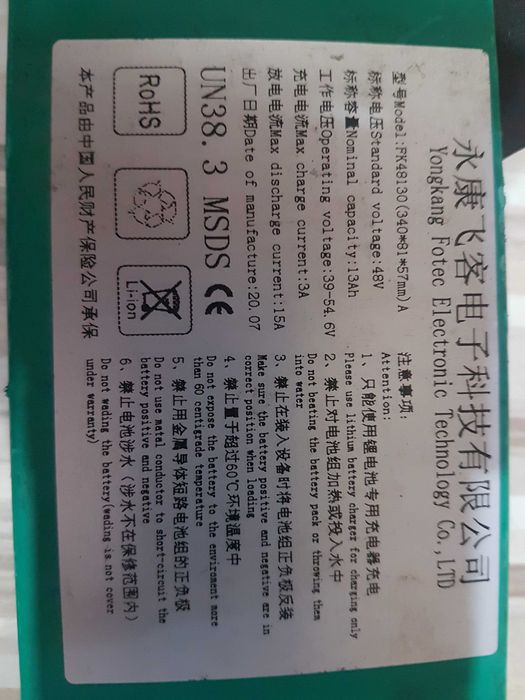 永康飞客电子科技有限公司
Yongkang Fotec Electronic Technology Co.,LTD
型号Model:FK48130(340*81*57mm)A
标称电压Standard voltage:48V
标称容量Nominal capacity:13Ah
工作电压Operating voltage:39-54.6V
充电电流Max charge current:3A
放电电流Max discharge current:15A
出厂日期Date of manufacture:20.07
UN38.3 MSDS CE
RoHS
Li-ion
本产品由中国人民财产保险公司承保
注意事项:
Attention:
1、只能使用锂电池专用充电器充电
Please use lithium battery charger for charging only
2、禁止对电池组加热或投入水中
Do not heating the battery pack or throwing them
into water
3、禁止在装入设备时将电池组正负极反装
Make sure the battery positive and negative are in
correct position when loading
4、禁止置于超过60℃环境温度中
Do not expose the battery to the enviroment more
than 60 centigrade temperature
5、禁止用金属导体短路电池组的正负极
Do not use metal conductor to short-circuit the
battery positive and negative
6、禁止电池涉水（涉水不在保修范围内）
Do not wading the battery(wading is not cover
under warranty)